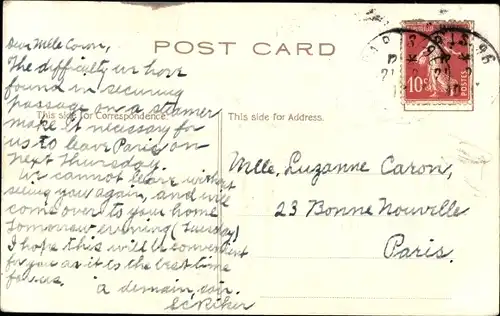 Dear Mlle Caron,
POST CARD
The difficulty we have
found in securing
passage on a steamer
make it necessary for
us to leave Paris on
next Thursday.
We cannot leave without
seeing you again, and will
come over to your home
tomorrow evening (Tuesday)
I hope this will be convenient
for you as it is the best time
for us.
a demain, soir.
This side for Correspondence.
This side for Address.
10c
POSTES
Mlle. Suzanne Caron,
23 Bonne Nouvelle
Paris.